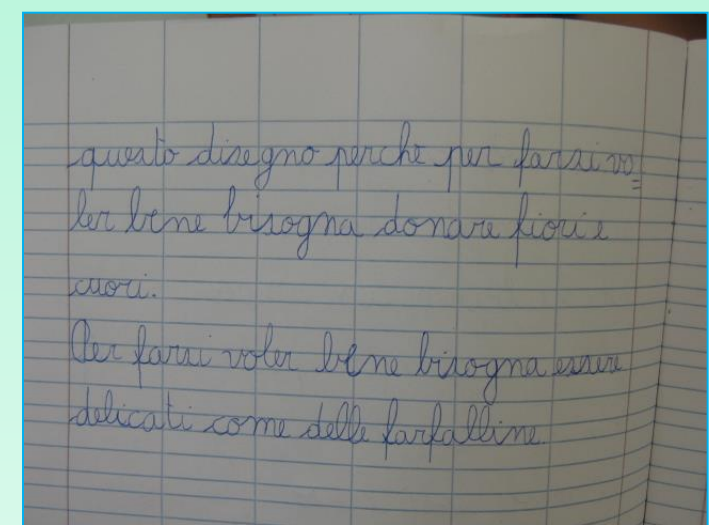 questo disegno perchè per farsi vo=
ler bene bisogna donare fiori e
cuori.
Per farsi voler bene bisogna essere
delicati come delle farfalline.